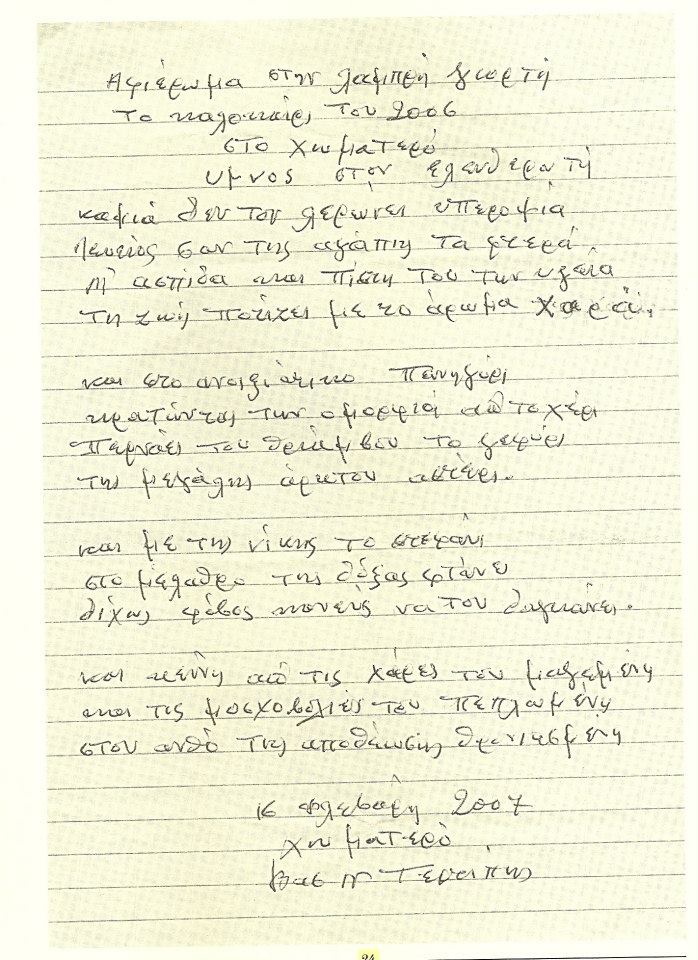 Αφιέρωμα στην λαμπρή γιορτή
το καλοκαίρι του 2006
στο Χωματερό
υμνος στον ελευθερωτή
καμιά δεν τον λερώνει υπεροψία
λευκός σαν της αγάπης τα φτερά
ασπίδα και πίστη του την υγεία
τη ζωή ποτίζει με το άρωμα χαρά.
και στο ανοιξιάτικο πανηγύρι
κρατώντας την ομορφιά απ το χέρι
Περνάει του θριάμβου το γεφύρι
της μεγάλης άρκτου αστέρι.
και με της νίκης το στεφάνι
στο μέλαθρο της δόξας φτάνει
δίχως φόβος κανείς να τον δαγκάνει.
και κείνη από τις χάρες του μαγεμένη
και τις μοσχοβολιές του πεπλωμένη
στον ανθό της αποθέωσης θρονιασμένη
16 Φλεβάρη 2007
Χωματερό
Βασ
24